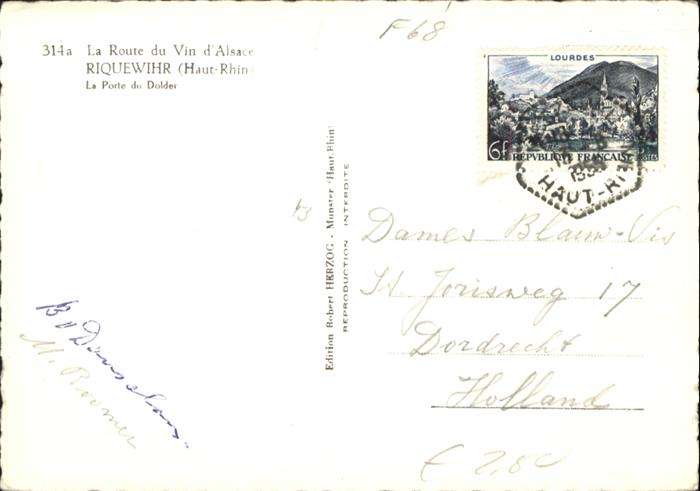 F68
314a La Route du Vin d'Alsace
RIQUEWIHR (Haut-Rhin)
La Porte du Dolder
LOURDES
6f
RÉPUBLIQUE FRANÇAISE
POSTES
HAUT-RHIN
Edition Robert HERZOG - Munster (Haut-Rhin)
REPRODUCTION INTERDITE
Dames Blauw-Vis
St Jorisweg 17
Dordrecht
Holland
M. Roomer
€ 2,50